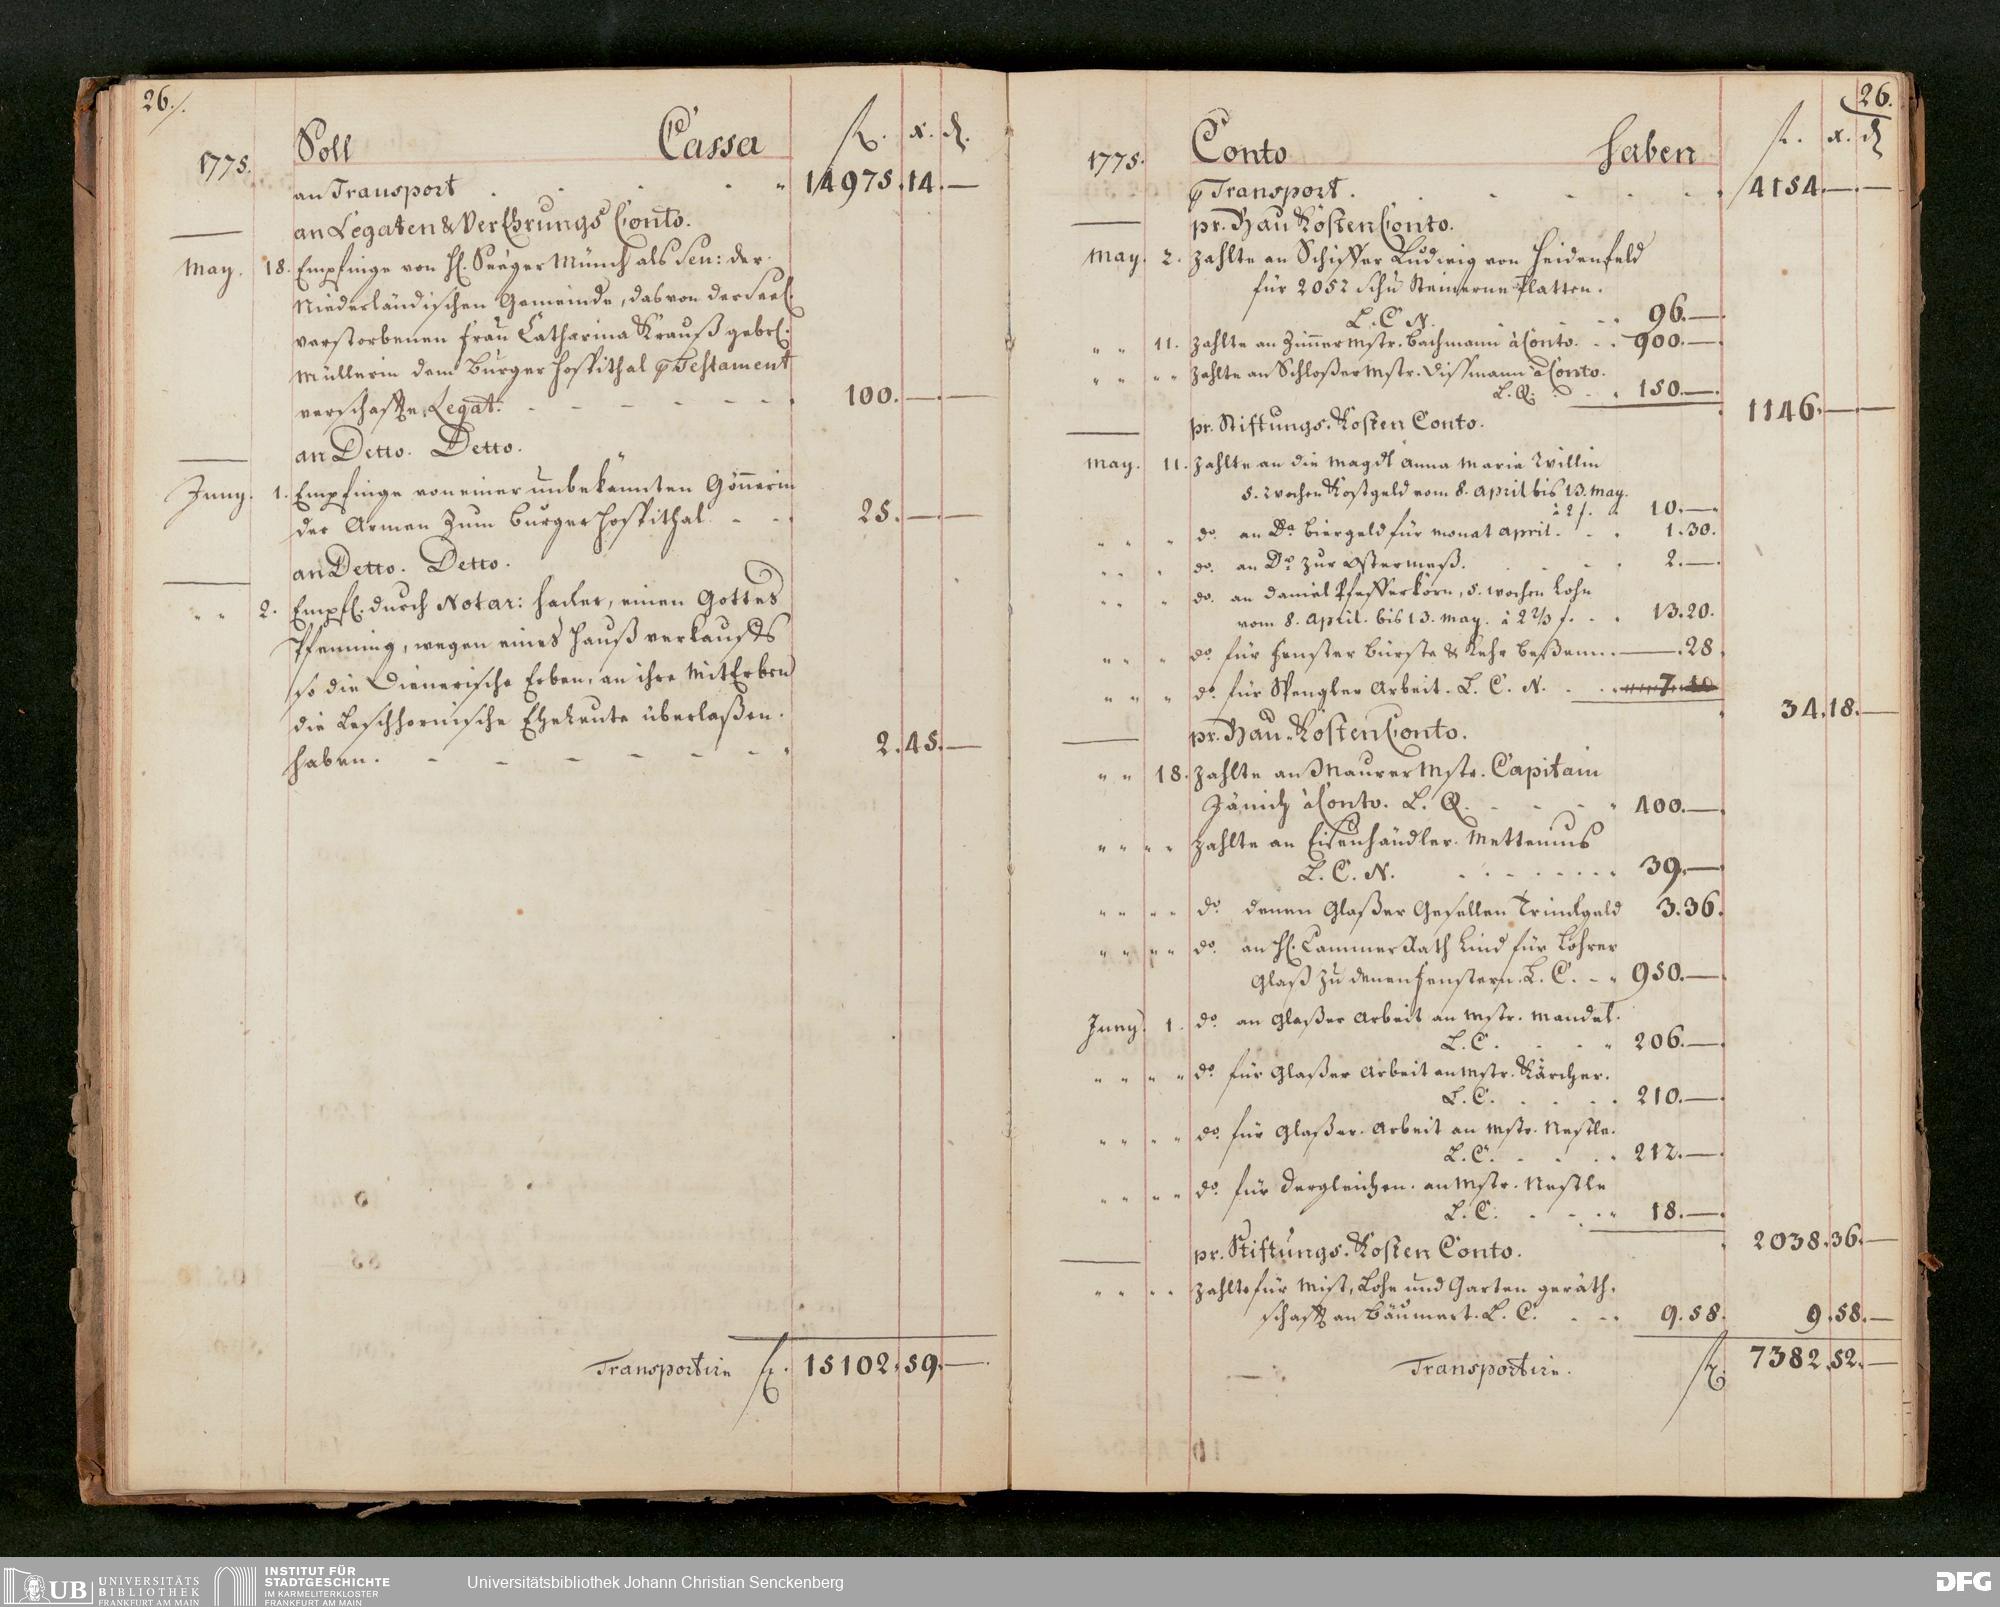 26.
Soll Cassa f. x. d.
1775.
an Transport . . . . " 14975. 14. —
an Legaten & Verehrungs Conto.
May. 18. Empfinge von H. Seeger Münch als Sen: der
Niederländischen Gemeinde, das von der Seel.
verstorbenen Frau Catharina Krauß gebr.
Müllerin dem Burger Hospithal p Testament
verschaffte Legat. - - - - - 100. — —
an Detto. Detto.
Juny. 1. Empfinge von einer unbekannten Gönnerin
der Armen zum Burger Hospithal. - - 25. — —
an Detto. Detto.
" " 2. Empf. durch Notar: Hacker, einen Gottes
Pfenning, wegen eines Hauß verkauffs
so die Dienerische Erben, an ihre MitErben
die Beschhornische Eheleute überlaßen.
haben. - - - - - - " 2. 45. —
Transportire f. 15102. 59. —
26.
Conto Haben f. x. d
1775.
p Transport . . . . . 4154. — —
pr. Bau Kosten Conto.
May. 2. Zahlte an Schiffer Ludwig von Heidenfeld
für 2052 Schu Steinerne Platten.
L. C. N. . . . 96. —
" " 11. Zahlte an Zimmer Mstr. Bachmann à Conto. . . 900. —
" " " " Zahlte an Schloßer Mstr. Dissmann à Conto.
L. Q. . . . 150. —
1146. — —
pr. Stiftungs. Kosten Conto.
May. 11. Zahlte an die Magdt Anna Maria Willin
5. Wochen Kostgeld vom 8. April bis 13. May.
à 2 f. " 10. —
" " " do. an Da. Biergeld für Monat April. . . 1. 30.
" " " do. an Do. zur Ostermeß. . . . 2. —
" " " do. an Daniel Pfefferkorn, 5. Wochen Lohn
vom 8. April. bis 13. May. à 2 2/3 f. . . 13. 20.
" " " do. für Fenster Bürste & Kehr Beßem. . — . 28.
" " " do. für Spengler Arbeit. L. C. N. . . . 7. 10
34. 18. —
pr. Bau Kosten Conto.
" " 18. Zahlte an Maurer Mstr. Capitain
Jänich à Conto. L. Q. . . . " 400. —
" " " " Zahlte an Eisenhändler. Mettenius
L. C. N. . . . . . . . 39. —
" " " " do. denen Glaßer Gesellen Trinckgeld 3. 36.
" " " " do. an H. Cammer Rath Lind für Lohrer
Glaß zu denen Fenstern. L. C. - " 950. —
Juny. 1. do. an Glaßer Arbeit an Mstr. Mandel.
L. C. . . . " 206. —
" " " " do. für Glaßer Arbeit an Mstr. Kärcher.
L. C. . . . . 210. —
" " " " do. für Glaßer. Arbeit an Mstr. Nestle.
L. C. . . . . 212. —
" " " " do. für dergleichen. an Mstr. Nestle
L. C. . . . " 18. —
2038. 36. —
pr. Stiftungs. Kosten Conto.
" " " " Zahlte für Mist, Lohn und Garten geräth-
schafft an Bäumert. L. C. . . . 9. 58. 9. 58. —
Transportire. f. 7382. 52. —
UB UNIVERSITÄTS BIBLIOTHEK FRANKFURT AM MAIN
INSTITUT FÜR STADTGESCHICHTE IM KARMELITERKLOSTER FRANKFURT AM MAIN
Universitätsbibliothek Johann Christian Senckenberg
DFG